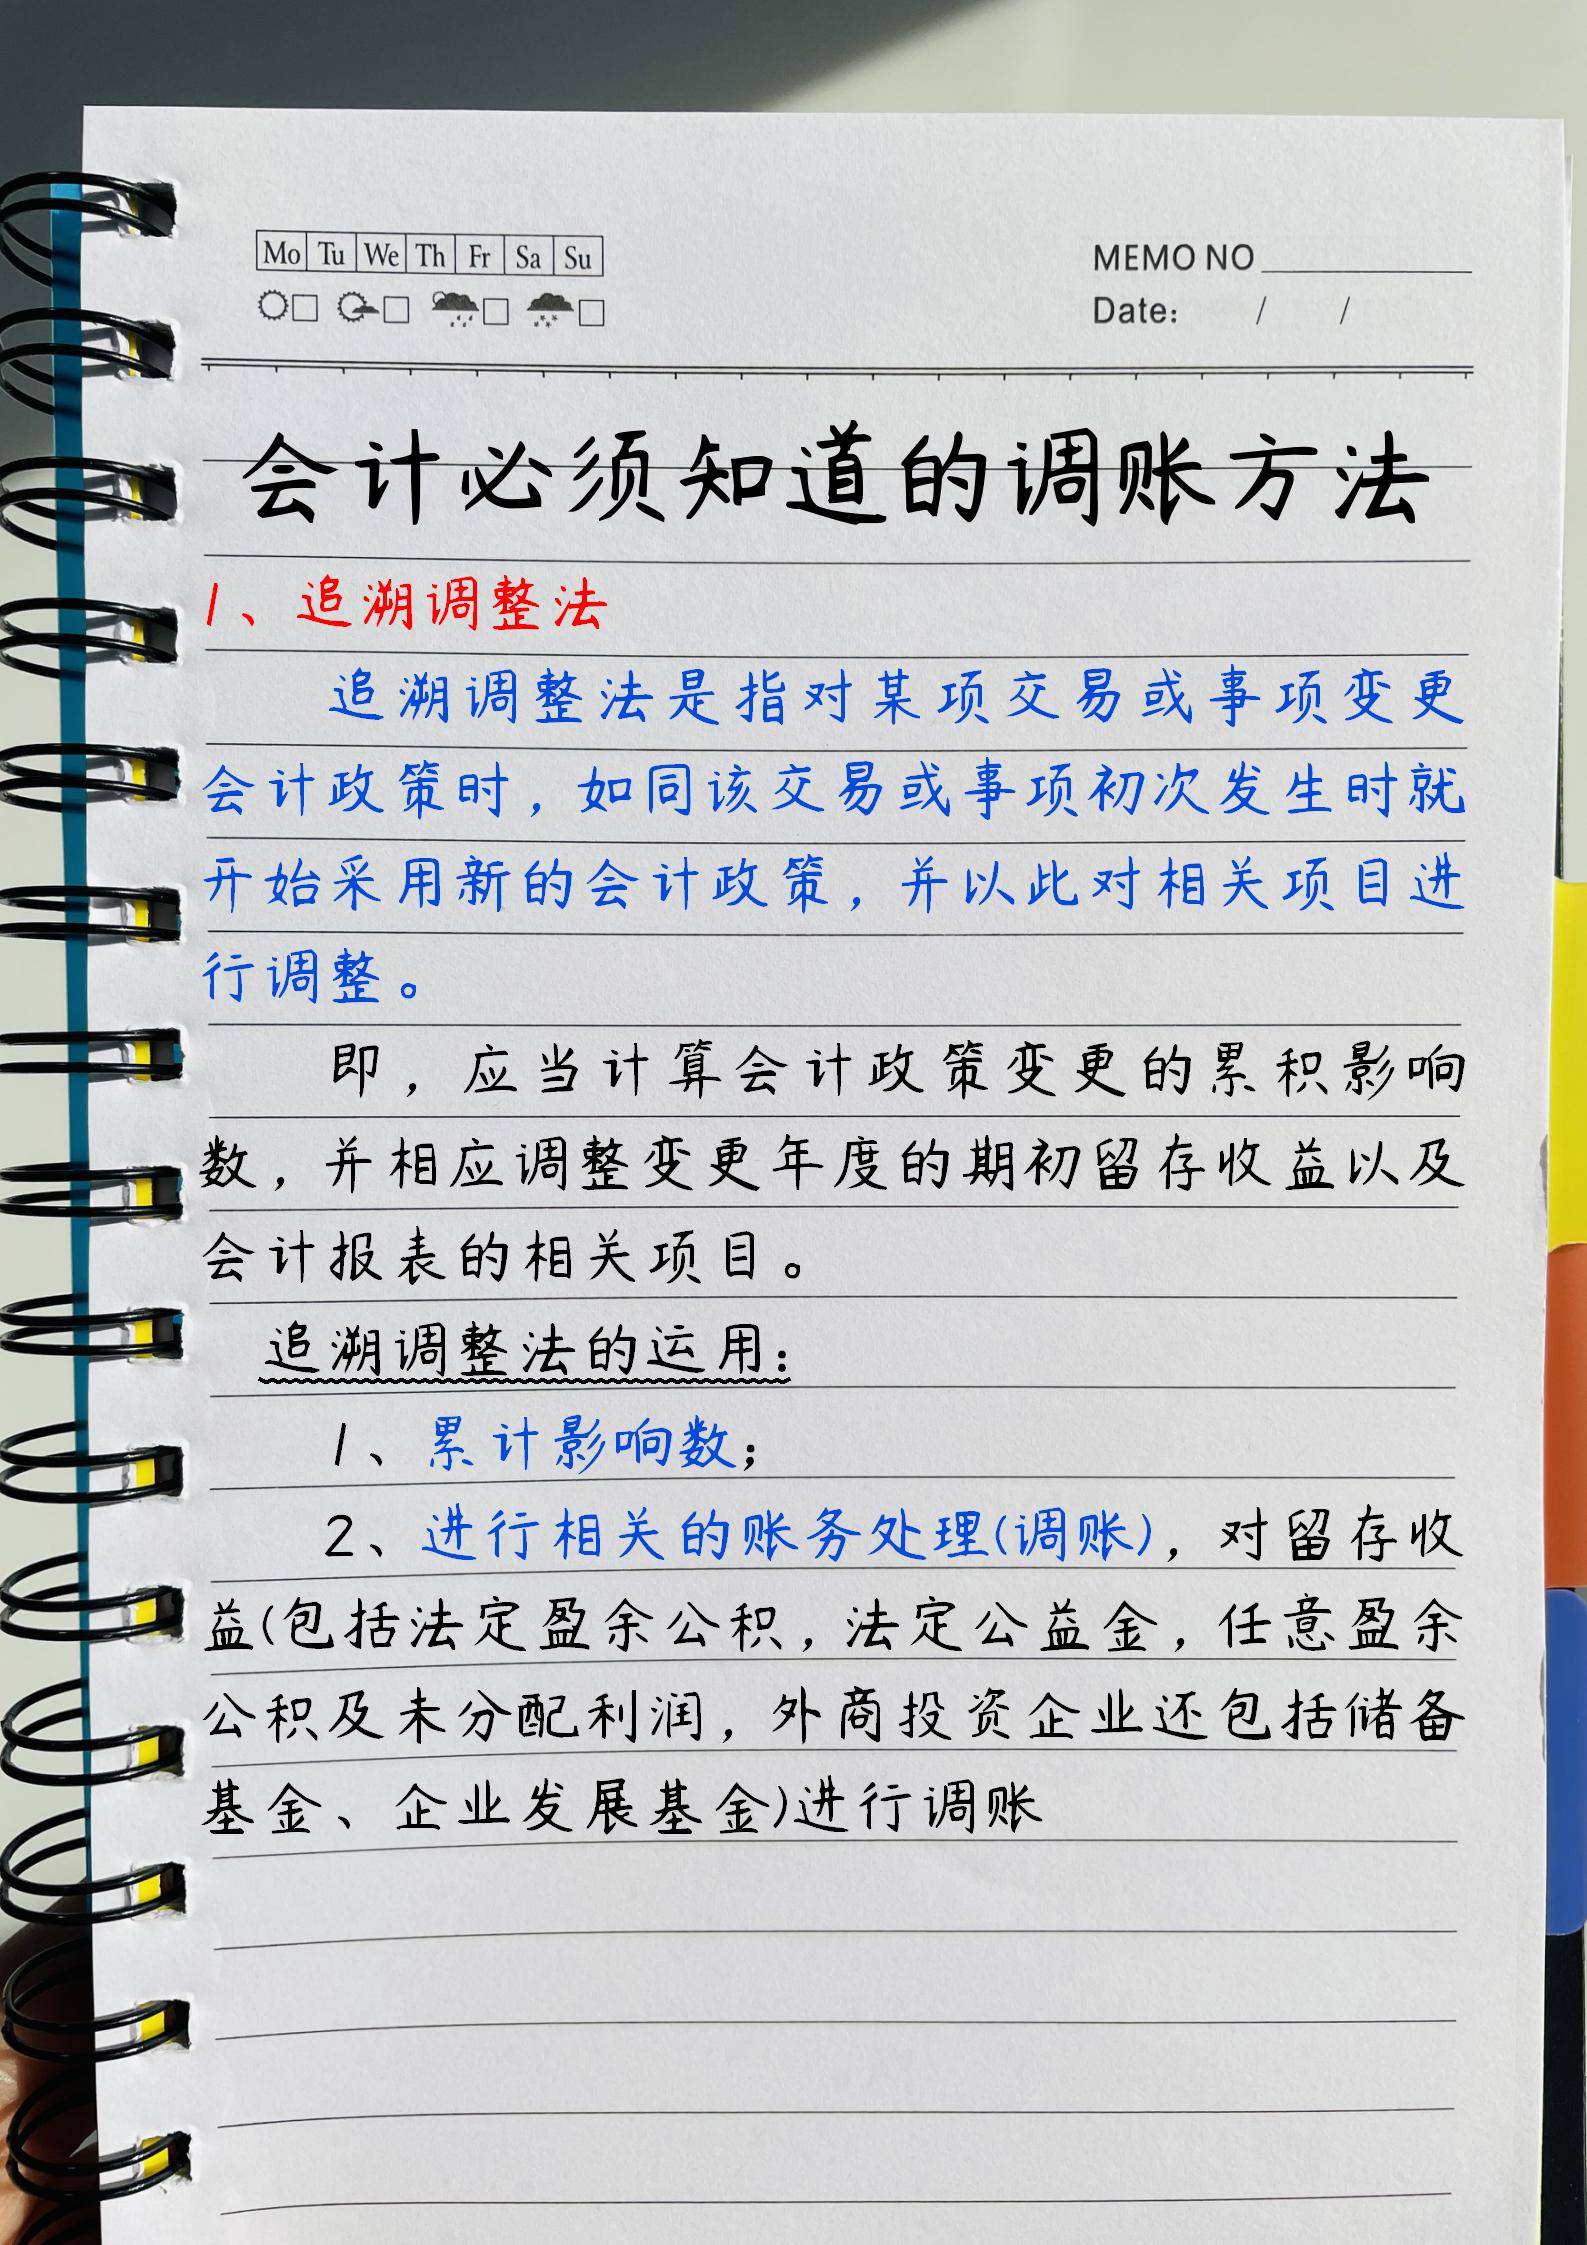 Mo Tu We Th Fr Sa Su
MEMO NO
Date: / /
会计必须知道的调账方法
1、追溯调整法
追溯调整法是指对某项交易或事项变更
会计政策时，如同该交易或事项初次发生时就
开始采用新的会计政策，并以此对相关项目进
行调整。
即，应当计算会计政策变更的累积影响
数，并相应调整变更年度的期初留存收益以及
会计报表的相关项目。
追溯调整法的运用：
1、累计影响数；
2、进行相关的账务处理(调账)，对留存收
益(包括法定盈余公积，法定公益金，任意盈余
公积及未分配利润，外商投资企业还包括储备
基金、企业发展基金)进行调账